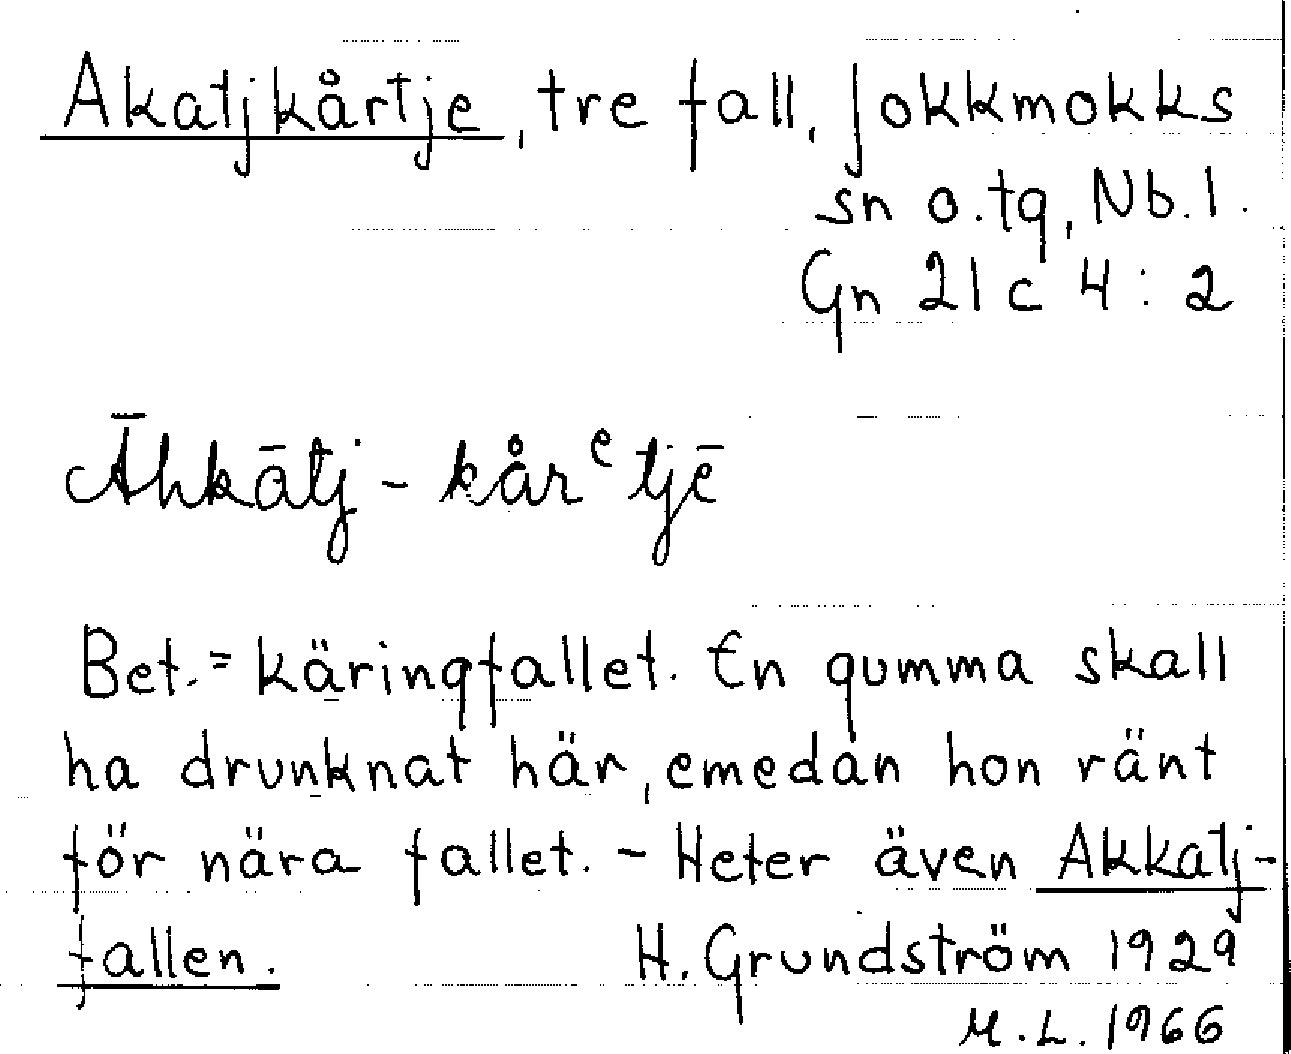 Akatjkårtje, tre fall, Jokkmokks
sn o. tg, Nb. l.
Gn 21 c 4 : 2
Āhkātj - kårᵉtjē
Bet. = käringfallet. En gumma skall
ha drunknat här, emedan hon ränt
för nära fallet. - Heter även Akkatj-
fallen.
H. Grundström 1929
M. L. 1966